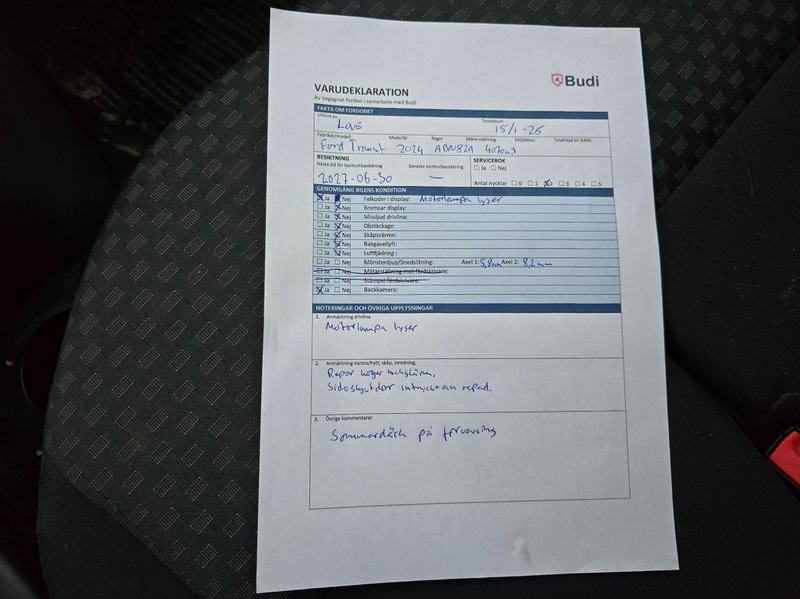 Budi
VARUDEKLARATION
Av begagnat fordon i samarbete med Budi
FAKTA OM FORDONET
Utförd av Testdatum
Love 15/1-26
Fabrikat/modell Modellår Regnr Mätarställning Miljöklass Totaltid bil (MM):
Ford Transit 2024 ABN82A
BESIKTNING SERVICEBOK
Nästa tid för kontrollbesiktning Senaste kontrollbesiktning Ja Nej
2027-06-30 —
Antal nycklar 0 1 2 3 4 5
GENOMGÅNG BILENS KONDITION
Ja Nej Felkoder i display: Motorlampa lyser
Ja Nej Bromsar display:
Ja Nej Missljud drivlina:
Ja Nej Oljeläckage:
Ja Nej Skåpsvärme:
Ja Nej Bakgavellyft:
Ja Nej Luftfjädring :
Ja Nej Mönsterdjup/Snedslitning: Axel 1: 5,8mm Axel 2: 8,2mm
Ja Nej Mätarställning mot färdskrivare:
Ja Nej Stämpel färdskrivare:
Ja Nej Backkamera:
NOTERINGAR OCH ÖVRIGA UPPLYSNINGAR
1. Anmärkning drivlina
Motorlampa lyser
2. Anmärkning kaross/hytt, skåp, inredning.
Repor höger bakskärm,
Sidoskjutdörr intryckt och repad.
3. Övriga kommentarer
Sommardäck på förvaring